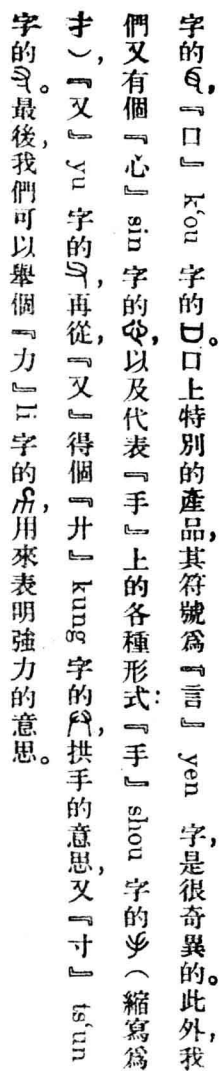 字的，『口』k‘ou 字的。口上特別的產品，其符號爲『言』yen 字，是很奇異的。此外，我
們又有個『心』sin 字的，以及代表『手』上的各種形式：『手』shou 字的（縮寫爲
扌），『又』yu 字的，再從『又』得個『廾』kung 字的，拱手的意思，又『寸』ts‘un
字的。最後，我們可以舉個『力』li 字的，用來表明強力的意思。